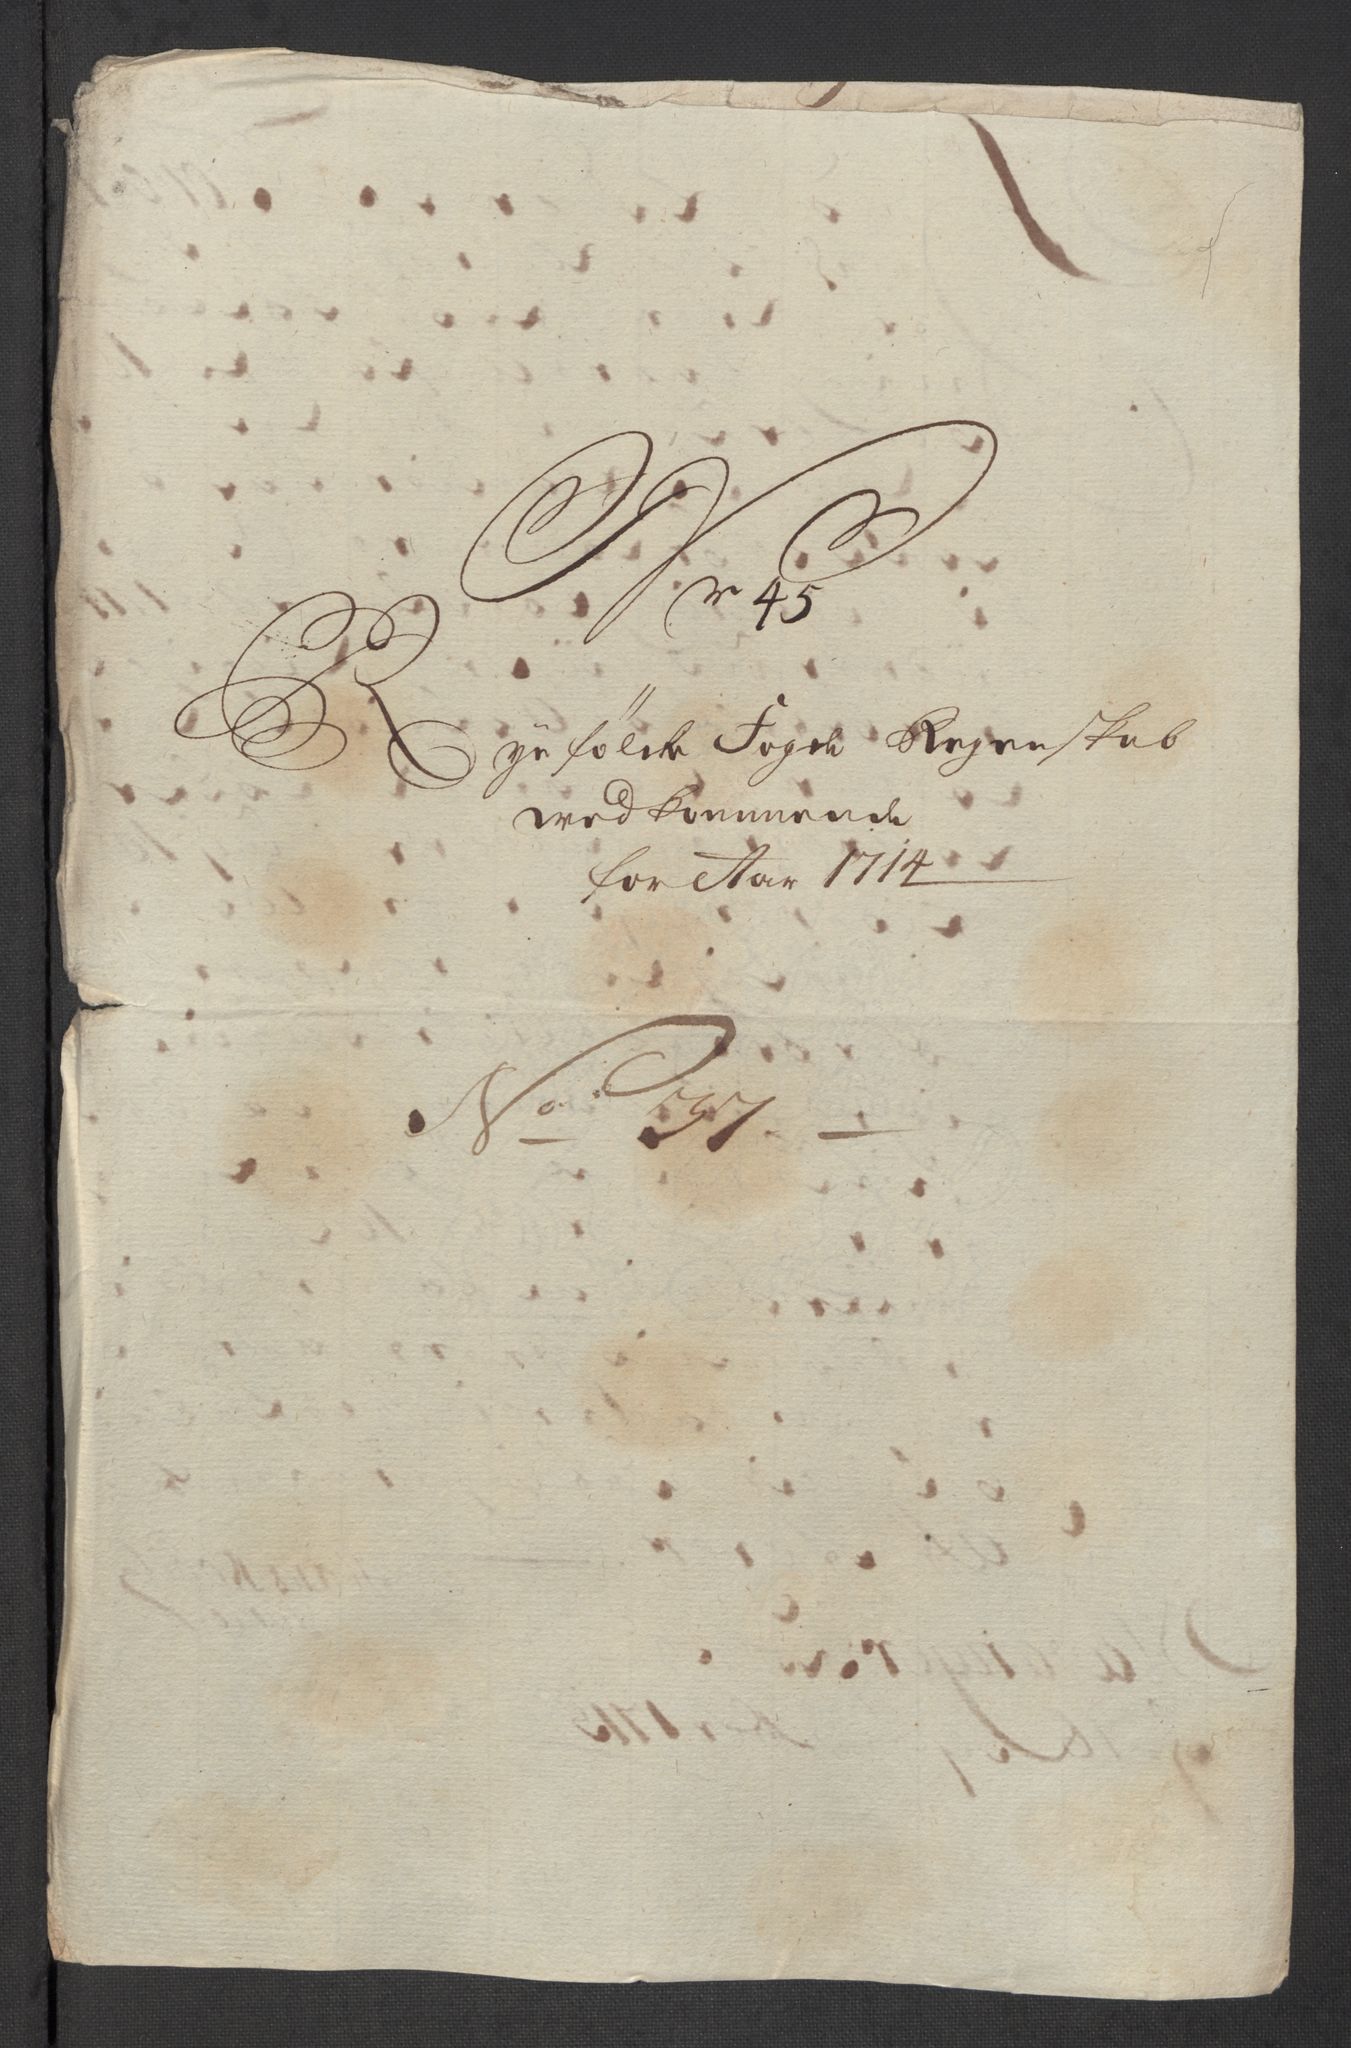 Nr 45
Ryefølcke Fogde Regenskab
wedkommende
for Aar 1714
No: 37.